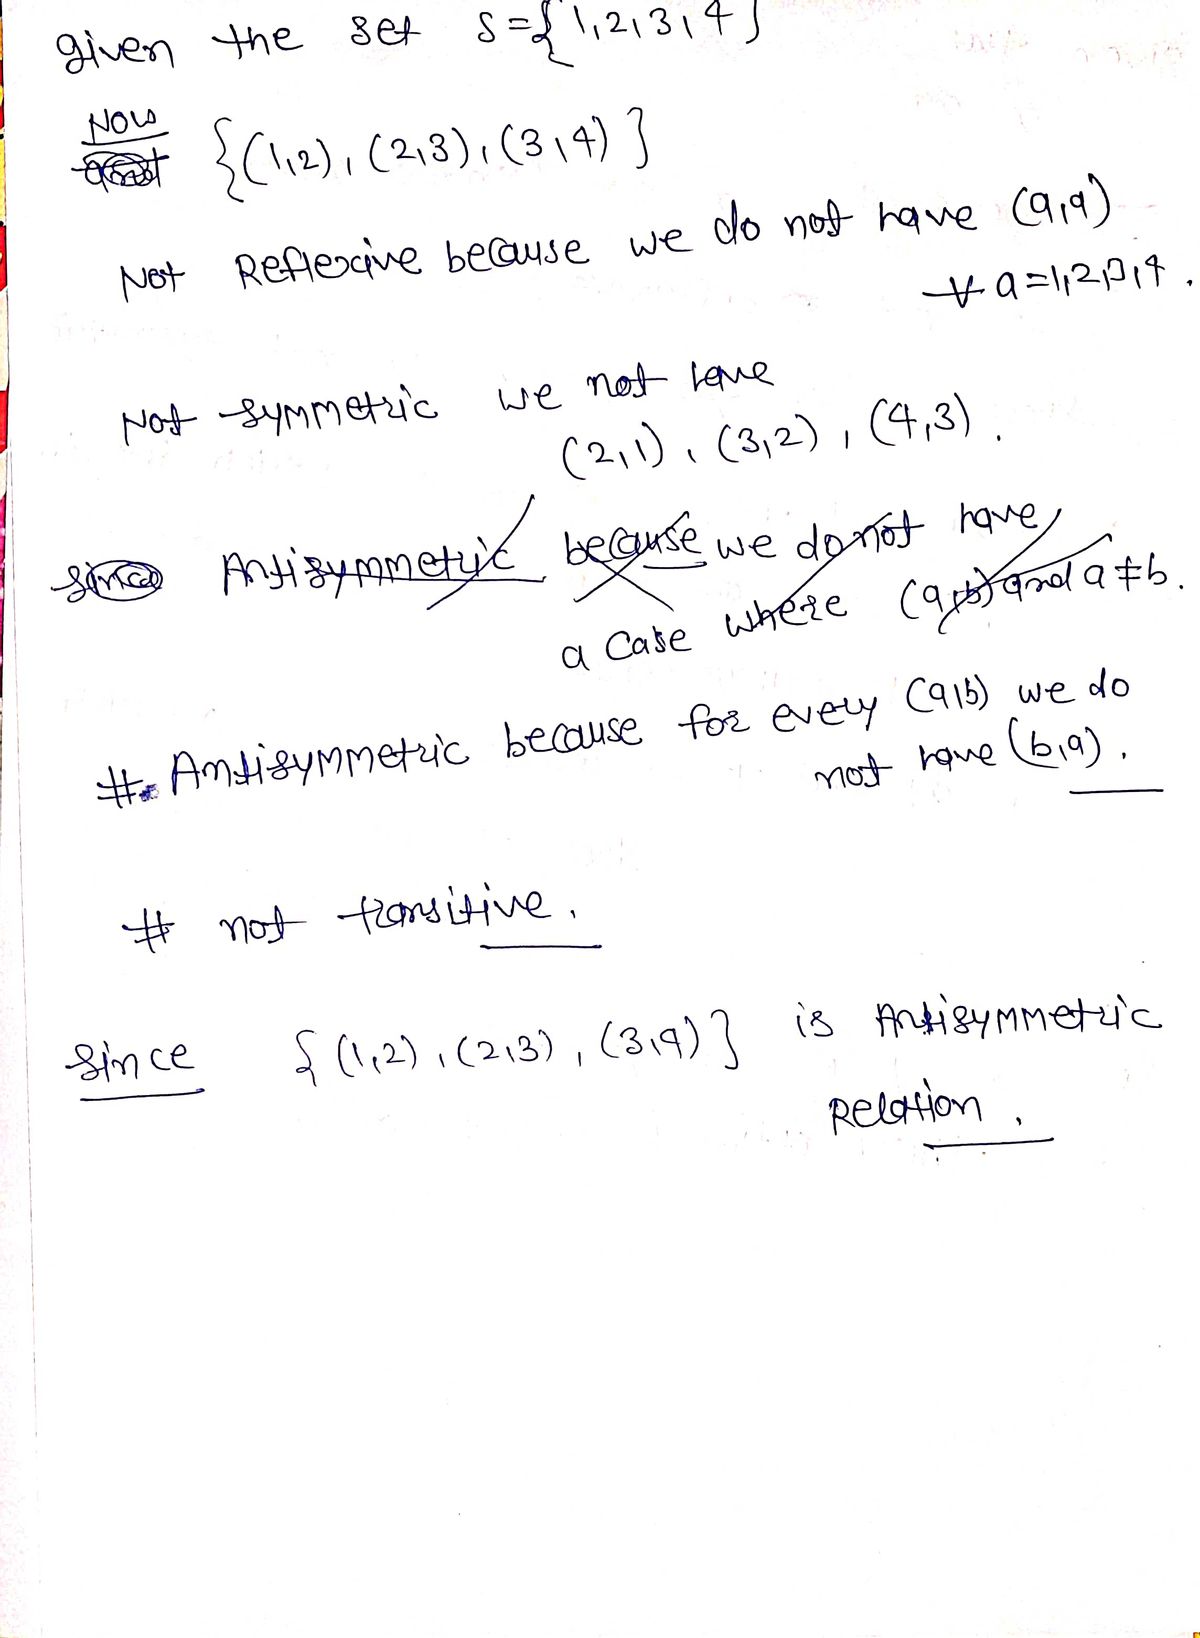 given the set S={1,2,3,4}
Now
{(1,2), (2,3), (3,4)}
Not Reflexive because we do not have (a,a)
∀ a=1,2,3,4.
Not symmetric we not have
(2,1), (3,2), (4,3).
since Antisymmetric because we do not have
a case where (a,b) and a ≠ b.
#. Antisymmetric because for every (a,b) we do
not have (b,a).
# not transitive.
since {(1,2), (2,3), (3,4)} is Antisymmetric
Relation.